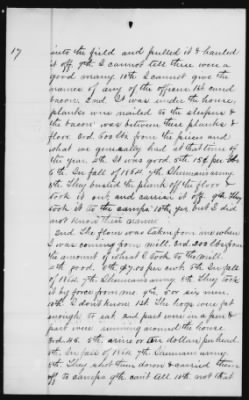 17
into the field and pulled it & hauled
it off. 9th I cannot tell there were a
good many 10th I cannot give the
names of any of the officers 1st cured
bacon. 2nd It was under the house,
planks were nailed to the sleepers &
the bacon was between these planks &
floor. 3rd 500 lbs from the pieces and
what we generally had at that time of
the year. 4th It was good. 5th 15¢ per lb.
6th In fall of 1864 7th Sherman's army
8th They busted the plank off the floor &
took it out and carried it off. 9th They
took it to the camps. 10th yes but I did
not know their names
2nd The flour was taken from me when
I was coming from mill. 3rd 200 lbs from
the amount of wheat I took to the mill.
4th good. 5th $7.00 per cwt. 6th In fall
of 1864 7th Sherman's army 8th They took
it by force from me 9th six men
10th I dont know. 1st The hogs were fat
enough to eat 2nd part were in a pen &
part were running around the house
3rd 5th five or ten dollars per head
6th In fall of 1864 7th Sherman's army
8th They shot them down & carried them
off to camps 9th can't tell 10th not that